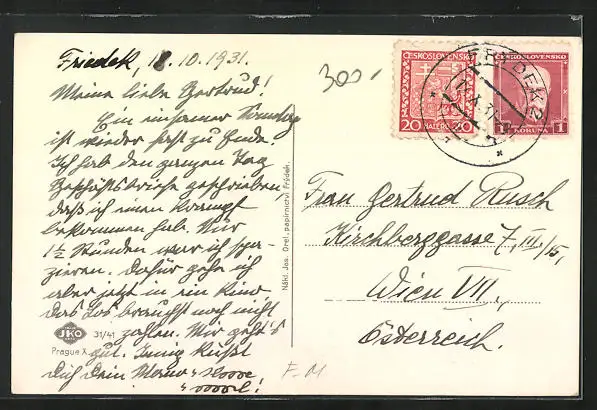 Friedek, 18.10.1931.
Meine liebe Gertrud!
Ein einsamer Sonntag
ist wieder fast zu Ende.
Ich hab den ganzen Tag
Geschäftsbriefe geschrieben,
daß ich einen Krampf
bekommen hab. Nur
1½ Stunden war ich spa-
zieren. Dafür geh ich
aber jetzt in ein Kino
das Los braucht noch nicht
zahlen. Mir geht's
gut. Innig küßt
Dich Dein
300
ČESKOSLOVENSKO
20 HALÉŘŮ 20
ČESKOSLOVENSKO
1 KORUNA 1
Frau Gertrud Rusch
Kirchberggasse 7, III/15,
Wien VII.,
Österreich.
Nákl. Jos. Orel, papírnictví Frýdek.
JKO
31/41
Prague X.
F-M